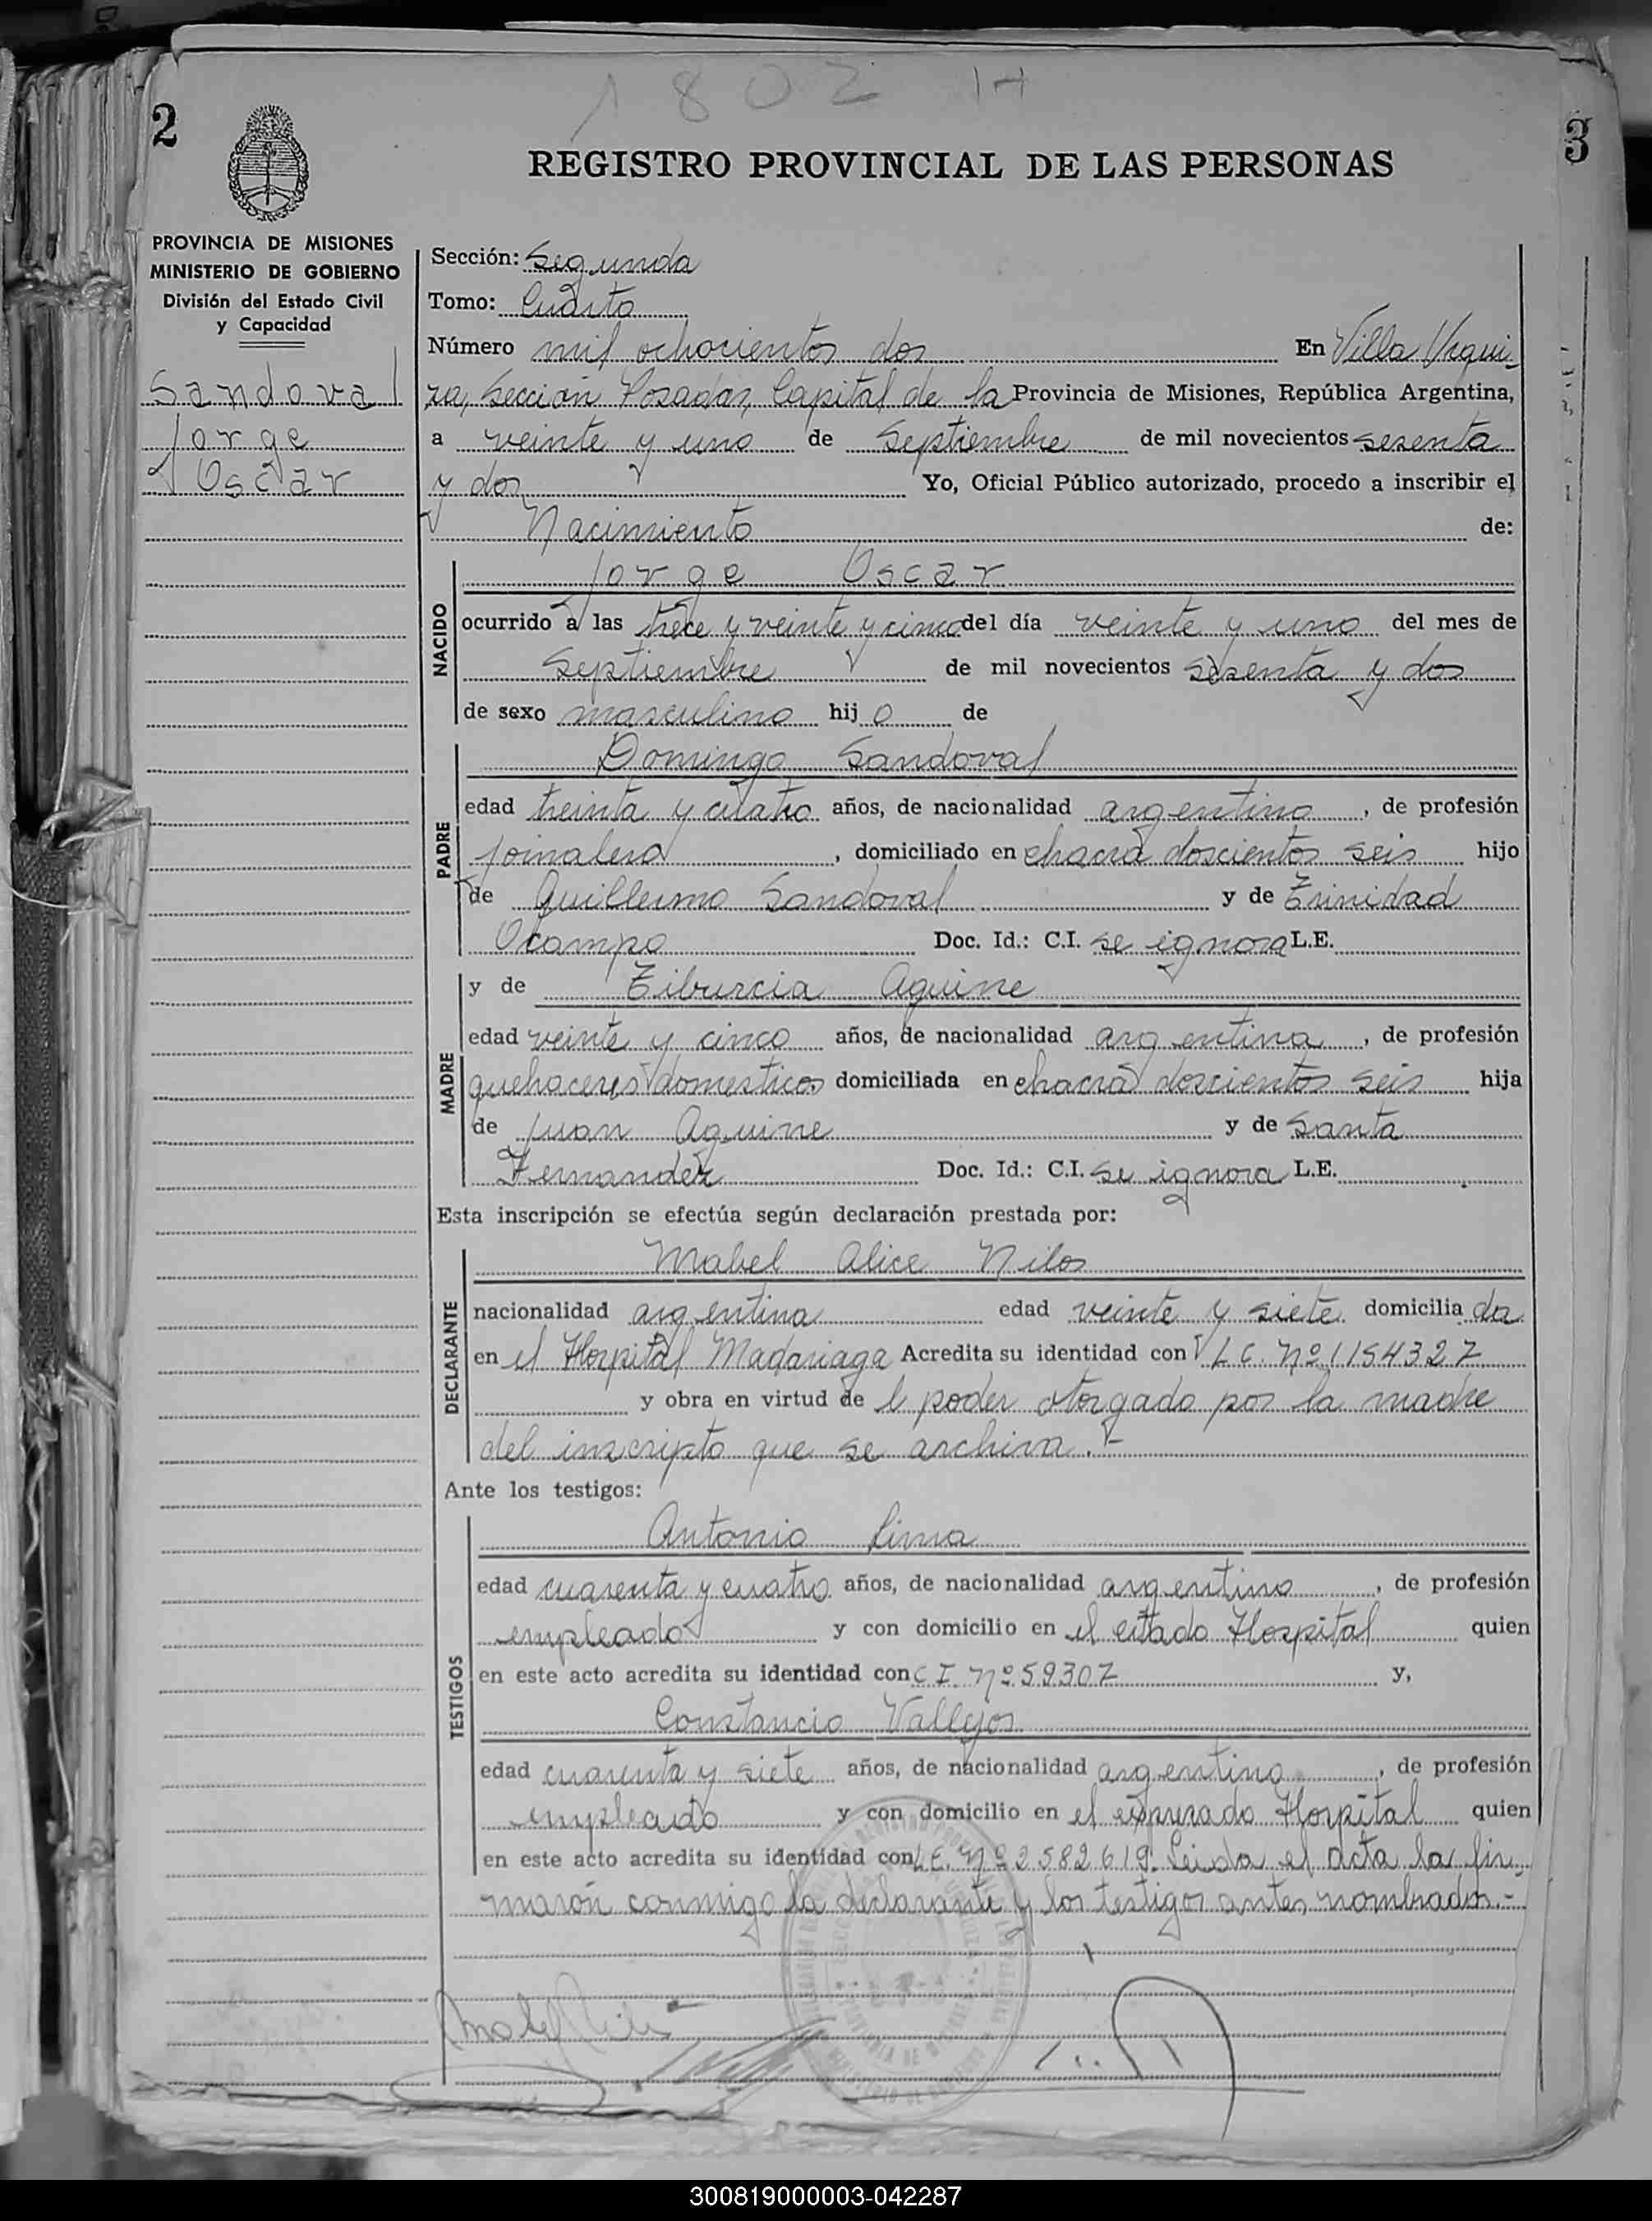 1802 H
2
3
REGISTRO PROVINCIAL DE LAS PERSONAS
PROVINCIA DE MISIONES
MINISTERIO DE GOBIERNO
División del Estado Civil
y Capacidad
Sandoval
Jorge
Oscar
Sección: Segunda
Tomo: Cuarto
Número mil ochocientos dos En Villa Urqui-
za, Sección Posadas, Capital de la Provincia de Misiones, República Argentina,
a veinte y uno de Septiembre de mil novecientos sesenta
y dos Yo, Oficial Público autorizado, procedo a inscribir el
Nacimiento de:
NACIDO
Jorge Oscar
ocurrido a las trece y veinte y cinco del día veinte y uno del mes de
Septiembre de mil novecientos sesenta y dos
de sexo masculino hijo de
PADRE
Domingo Sandoval
edad treinta y cuatro años, de nacionalidad argentino, de profesión
jornalero, domiciliado en chacra doscientos seis hijo
de Guillermo Sandoval y de Trinidad
Ocampo Doc. Id.: C.I. se ignora L.E.
MADRE
y de Tiburcia Aguirre
edad veinte y cinco años, de nacionalidad argentina, de profesión
quehaceres domesticos domiciliada en chacra doscientos seis hija
de Juan Aguirre y de Santa
Fernandez Doc. Id.: C.I. se ignora L.E.
Esta inscripción se efectúa según declaración prestada por:
DECLARANTE
Mabel Alice Nilos
nacionalidad argentina edad veinte y siete domiciliada
en el Hospital Madariaga Acredita su identidad con L C. Nº 1154327
y obra en virtud de l poder otorgado por la madre
del inscripto que se archiva.-
Ante los testigos:
TESTIGOS
Antonio Lima
edad cuarenta y cuatro años, de nacionalidad argentino, de profesión
empleado y con domicilio en el citado Hospital quien
en este acto acredita su identidad con C I. Nº 59307 y,
Constancio Vallejos
edad cuarenta y siete años, de nacionalidad argentino, de profesión
empleado y con domicilio en el expresado Hospital quien
en este acto acredita su identidad con L.E. Nº 2582619. Leida el acta la fir-
maron conmigo la declarante y los testigos antes nombrados.-
300819000003-042287